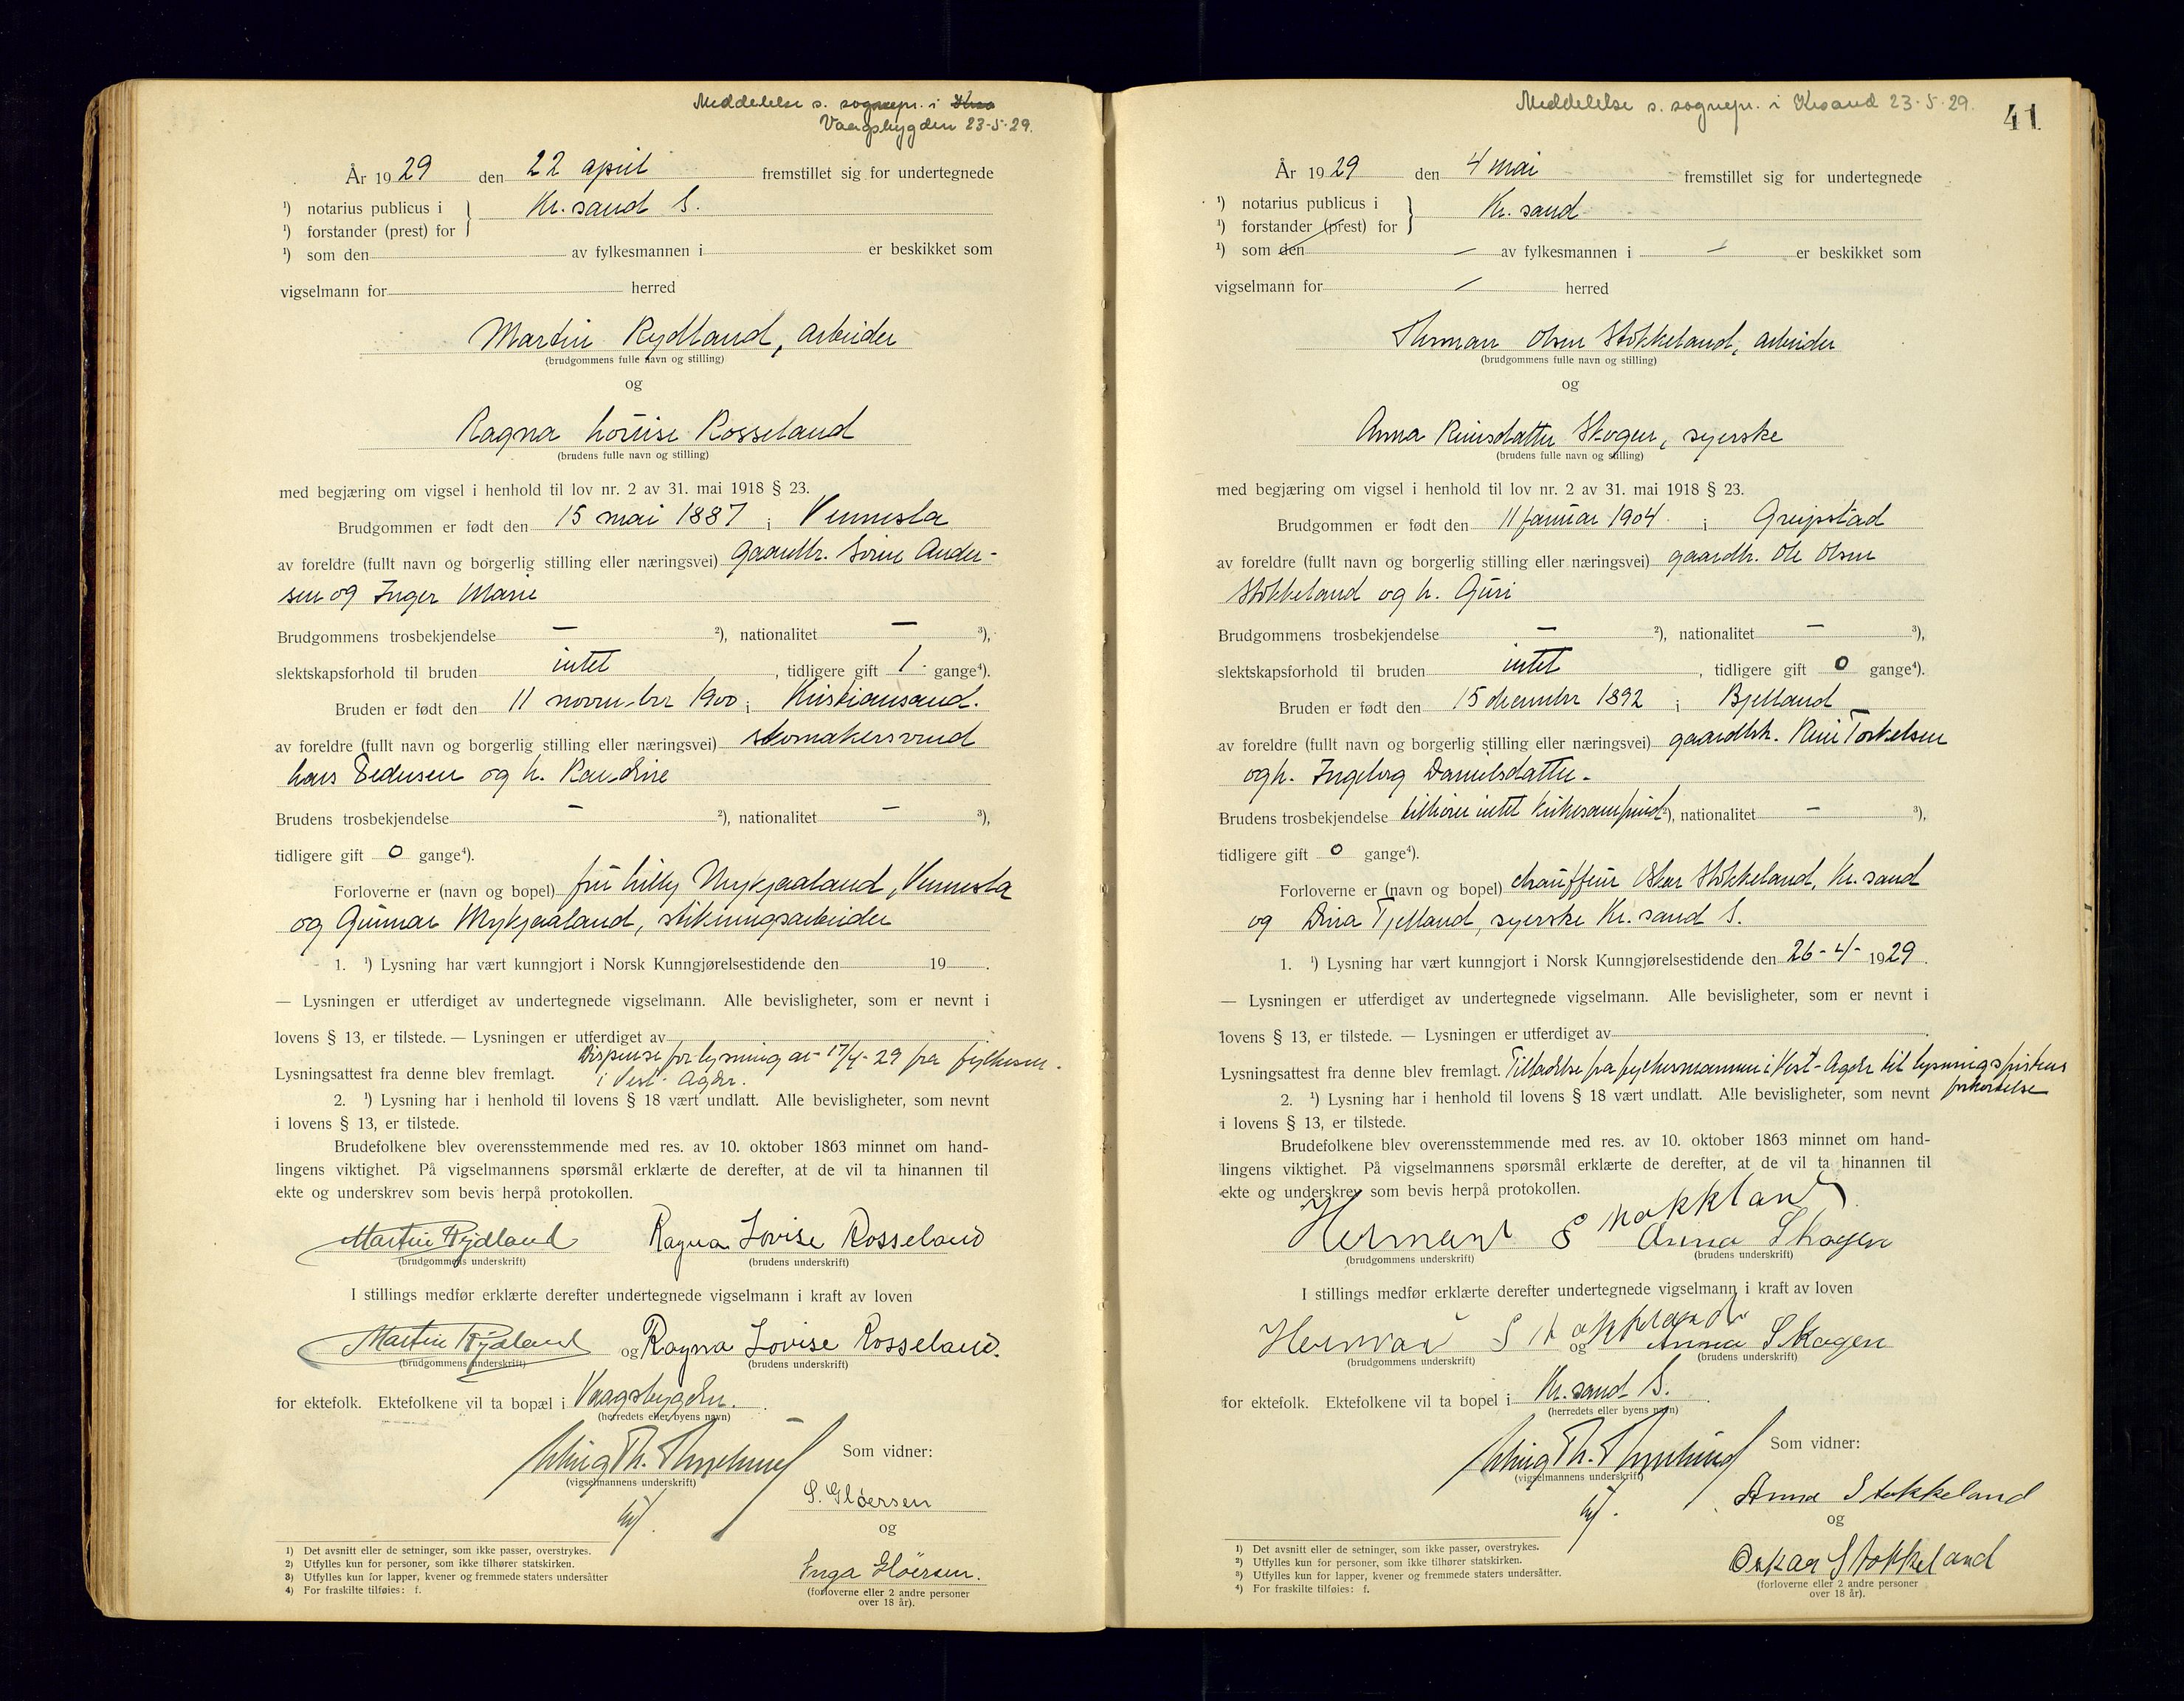 Meddelelse s. sognepr. i
Vaagsbygden 23-5-29.
År 1929 den 22 april fremstillet sig for undertegnede
¹) notarius publicus i
Kr.sand S.
¹) forstander (prest) for
¹) som den av fylkesmannen i er beskikket som
vigselmann for herred
Martin Rydland, arbeider
(brudgommens fulle navn og stilling)
og
Ragna Louise Rosseland
(brudens fulle navn og stilling)
med begjæring om vigsel i henhold til lov nr. 2 av 31. mai 1918 § 23.
Brudgommen er født den 15 mai 1887 i Vennesla
av foreldre (fullt navn og borgerlig stilling eller næringsvei) gaardbr. Søren Ander-
sen og Inger Marie
Brudgommens trosbekjendelse — ²), nationalitet — ³),
slektskapsforhold til bruden intet, tidligere gift 1 gange⁴).
Bruden er født den 11 november 1900 i Kristiansand.
av foreldre (fullt navn og borgerlig stilling eller næringsvei) skomakersvend
Lars Pedersen og h. Randine
Brudens trosbekjendelse — ²), nationalitet — ³),
tidligere gift 0 gange⁴).
Forloverne er (navn og bopel) fru Lilly Mykjaaland, Vennesla
og Gunnar Mykjaaland, stikningsarbeider
1. ¹) Lysning har vært kunngjort i Norsk Kunngjørelsestidende den 19 .
— Lysningen er utferdiget av undertegnede vigselmann. Alle bevisligheter, som er nevnt i
lovens § 13, er tilstede. — Lysningen er utferdiget av
Dispense for lysning av 17/4-29 fra fylkesm.
Lysningsattest fra denne blev fremlagt. i Vest-Agder.
2. ¹) Lysning har i henhold til lovens § 18 vært undlatt. Alle bevisligheter, som nevnt
i lovens § 13, er tilstede.
Brudefolkene blev overensstemmende med res. av 10. oktober 1863 minnet om hand-
lingens viktighet. På vigselmannens spørsmål erklærte de derefter, at de vil ta hinannen til
ekte og underskrev som bevis herpå protokollen.
Martin Rydland Ragna Lovise Rosseland
(brudgommens underskrift) (brudens underskrift)
I stillings medfør erklærte derefter undertegnede vigselmann i kraft av loven
Martin Rydland og Ragna Lovise Rosseland.
(brudgommens underskrift) (brudens underskrift)
for ektefolk. Ektefolkene vil ta bopæl i Vaagsbygden.
(herredets eller byens navn)
Som vidner:
(vigselmannens underskrift)
S. Gløersen
og
Inga Gløersen.
(forloverne eller 2 andre personer
over 18 år).
1) Det avsnitt eller de setninger, som ikke passer, overstrykes.
2) Utfylles kun for personer, som ikke tilhører statskirken.
3) Utfylles kun for lapper, kvener og fremmede staters undersåtter
4) For fraskilte tilføies: f.
Meddelelse s. sognepr. i Krsand 23-5-29.
41
År 1929 den 4 mai fremstillet sig for undertegnede
¹) notarius publicus i
Kr.sand
¹) forstander (prest) for
¹) som den — av fylkesmannen i — er beskikket som
vigselmann for — herred
Herman Olsen Stokkeland, arbeider
(brudgommens fulle navn og stilling)
og
Anna Reiersdatter Skogen, syerske
(brudens fulle navn og stilling)
med begjæring om vigsel i henhold til lov nr. 2 av 31. mai 1918 § 23.
Brudgommen er født den 11 januar 1904 i Greipstad
av foreldre (fullt navn og borgerlig stilling eller næringsvei) gaardbr. Ole Olsen
Stokkeland og h. Guri
Brudgommens trosbekjendelse — ²), nationalitet — ³),
slektskapsforhold til bruden intet, tidligere gift 0 gange⁴).
Bruden er født den 15 december 1892 i Bjelland
av foreldre (fullt navn og borgerlig stilling eller næringsvei) gaardbr. Reier Torkelsen
og h. Ingeborg Danielsdatter.
Brudens trosbekjendelse tilhører intet kirkesamfund ²), nationalitet — ³),
tidligere gift 0 gange⁴).
Forloverne er (navn og bopel) chauffeur Oskar Stokkeland, Kr.sand
og Dina Tjelland, syerske Kr.sand S.
1. ¹) Lysning har vært kunngjort i Norsk Kunngjørelsestidende den 26-4- 1929.
— Lysningen er utferdiget av undertegnede vigselmann. Alle bevisligheter, som er nevnt i
lovens § 13, er tilstede. — Lysningen er utferdiget av
Lysningsattest fra denne blev fremlagt. Tilladelse fra fylkesmannen i Vest-Agder til lysningsfristens
forkortelse
2. ¹) Lysning har i henhold til lovens § 18 vært undlatt. Alle bevisligheter, som nevnt
i lovens § 13, er tilstede.
Brudefolkene blev overensstemmende med res. av 10. oktober 1863 minnet om hand-
lingens viktighet. På vigselmannens spørsmål erklærte de derefter, at de vil ta hinannen til
ekte og underskrev som bevis herpå protokollen.
Herman Anna Skogen
(brudgommens underskrift) (brudens underskrift)
I stillings medfør erklærte derefter undertegnede vigselmann i kraft av loven
Herman Stokkeland og Anna Skogen
(brudgommens underskrift) (brudens underskrift)
for ektefolk. Ektefolkene vil ta bopel i Kr.sand S.
(herredets eller byens navn)
Som vidner:
(vigselmannens underskrift)
Anna Stokkeland
og
Oskar Stokkeland
(forloverne eller 2 andre personer
over 18 år).
1) Det avsnitt eller de setninger, som ikke passer, overstrykes.
2) Utfylles kun for personer, som ikke tilhører statskirken.
3) Utfylles kun for lapper, kvener og fremmede staters undersåtter.
4) For fraskilte tilføies: f.